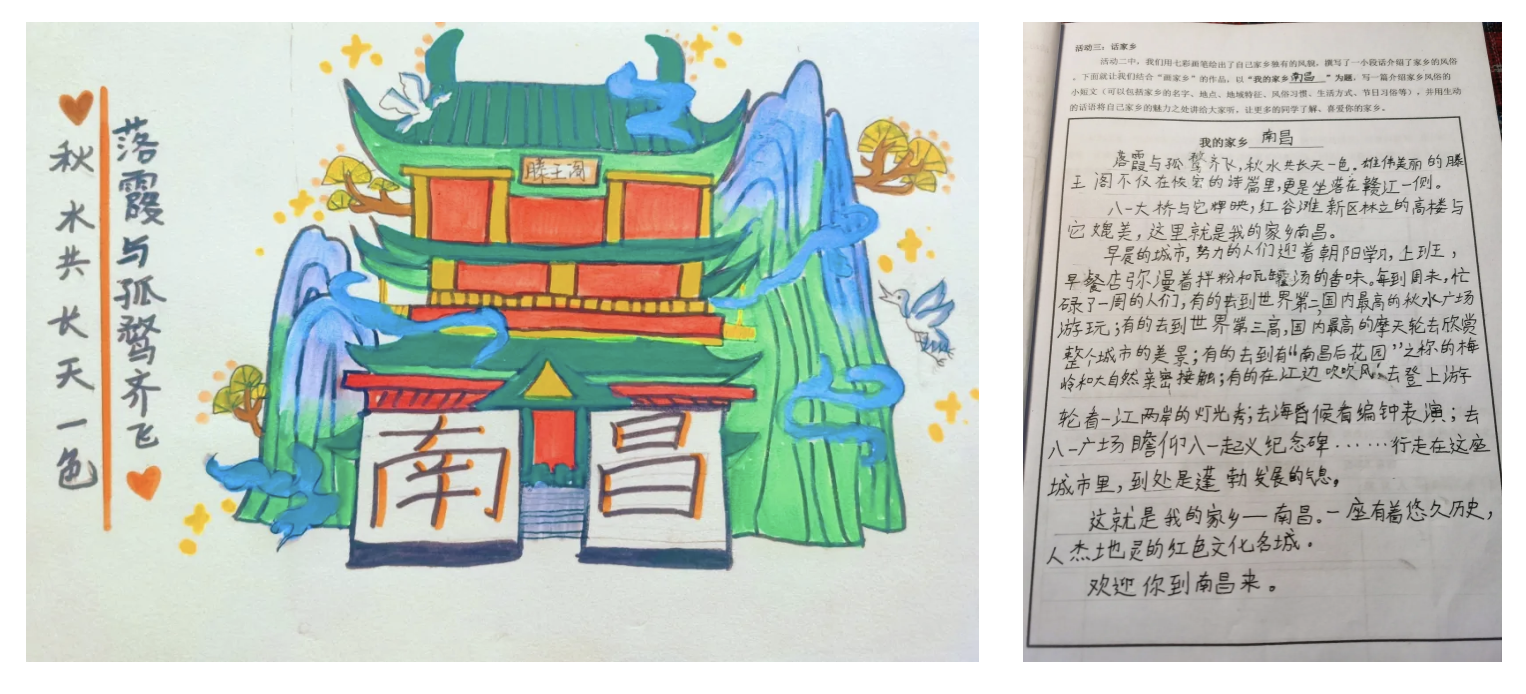 落霞与孤鹜齐飞
秋水共长天一色
滕王阁
南昌
活动三：话家乡
活动二中，我们用七彩画笔绘出了自己家乡独有的风貌，撰写了一小段话介绍了家乡的风俗
，下面就让我们结合“画家乡”的作品，以“我的家乡南昌”为题，写一篇介绍家乡风俗的
小短文（可以包括家乡的名字、地点、地域特征、风俗习惯、生活方式、节日习俗等），并用生动
的话语将自己家乡的魅力之处讲给大家听，让更多的同学了解、喜爱你的家乡。
我的家乡 南昌
落霞与孤鹜齐飞,秋水共长天一色.雄伟美丽的滕
王阁不仅在恢宏的诗篇里,更是坐落在赣江一侧。
八一大桥与它辉映,红谷滩新区林立的高楼与
它媲美,这里就是我的家乡南昌。
早晨的城市,努力的人们迎着朝阳学习,上班,
早餐店弥漫着拌粉和瓦罐汤的香味。每到周末,忙
碌了一周的人们,有的去到世界第二,国内最高的秋水广场
游玩;有的去到世界第三高,国内最高的摩天轮去欣赏
整个城市的美景;有的去到有“南昌后花园”之称的梅
岭和大自然亲密接触;有的在江边吹吹风;去登上游
轮看一江两岸的灯光秀;去海昏候看编钟表演;去
八一广场瞻仰八一起义纪念碑……行走在这座
城市里,到处是蓬勃发展的气息。
这就是我的家乡—南昌。一座有着悠久历史,
人杰地灵的红色文化名城.
欢迎你到南昌来。